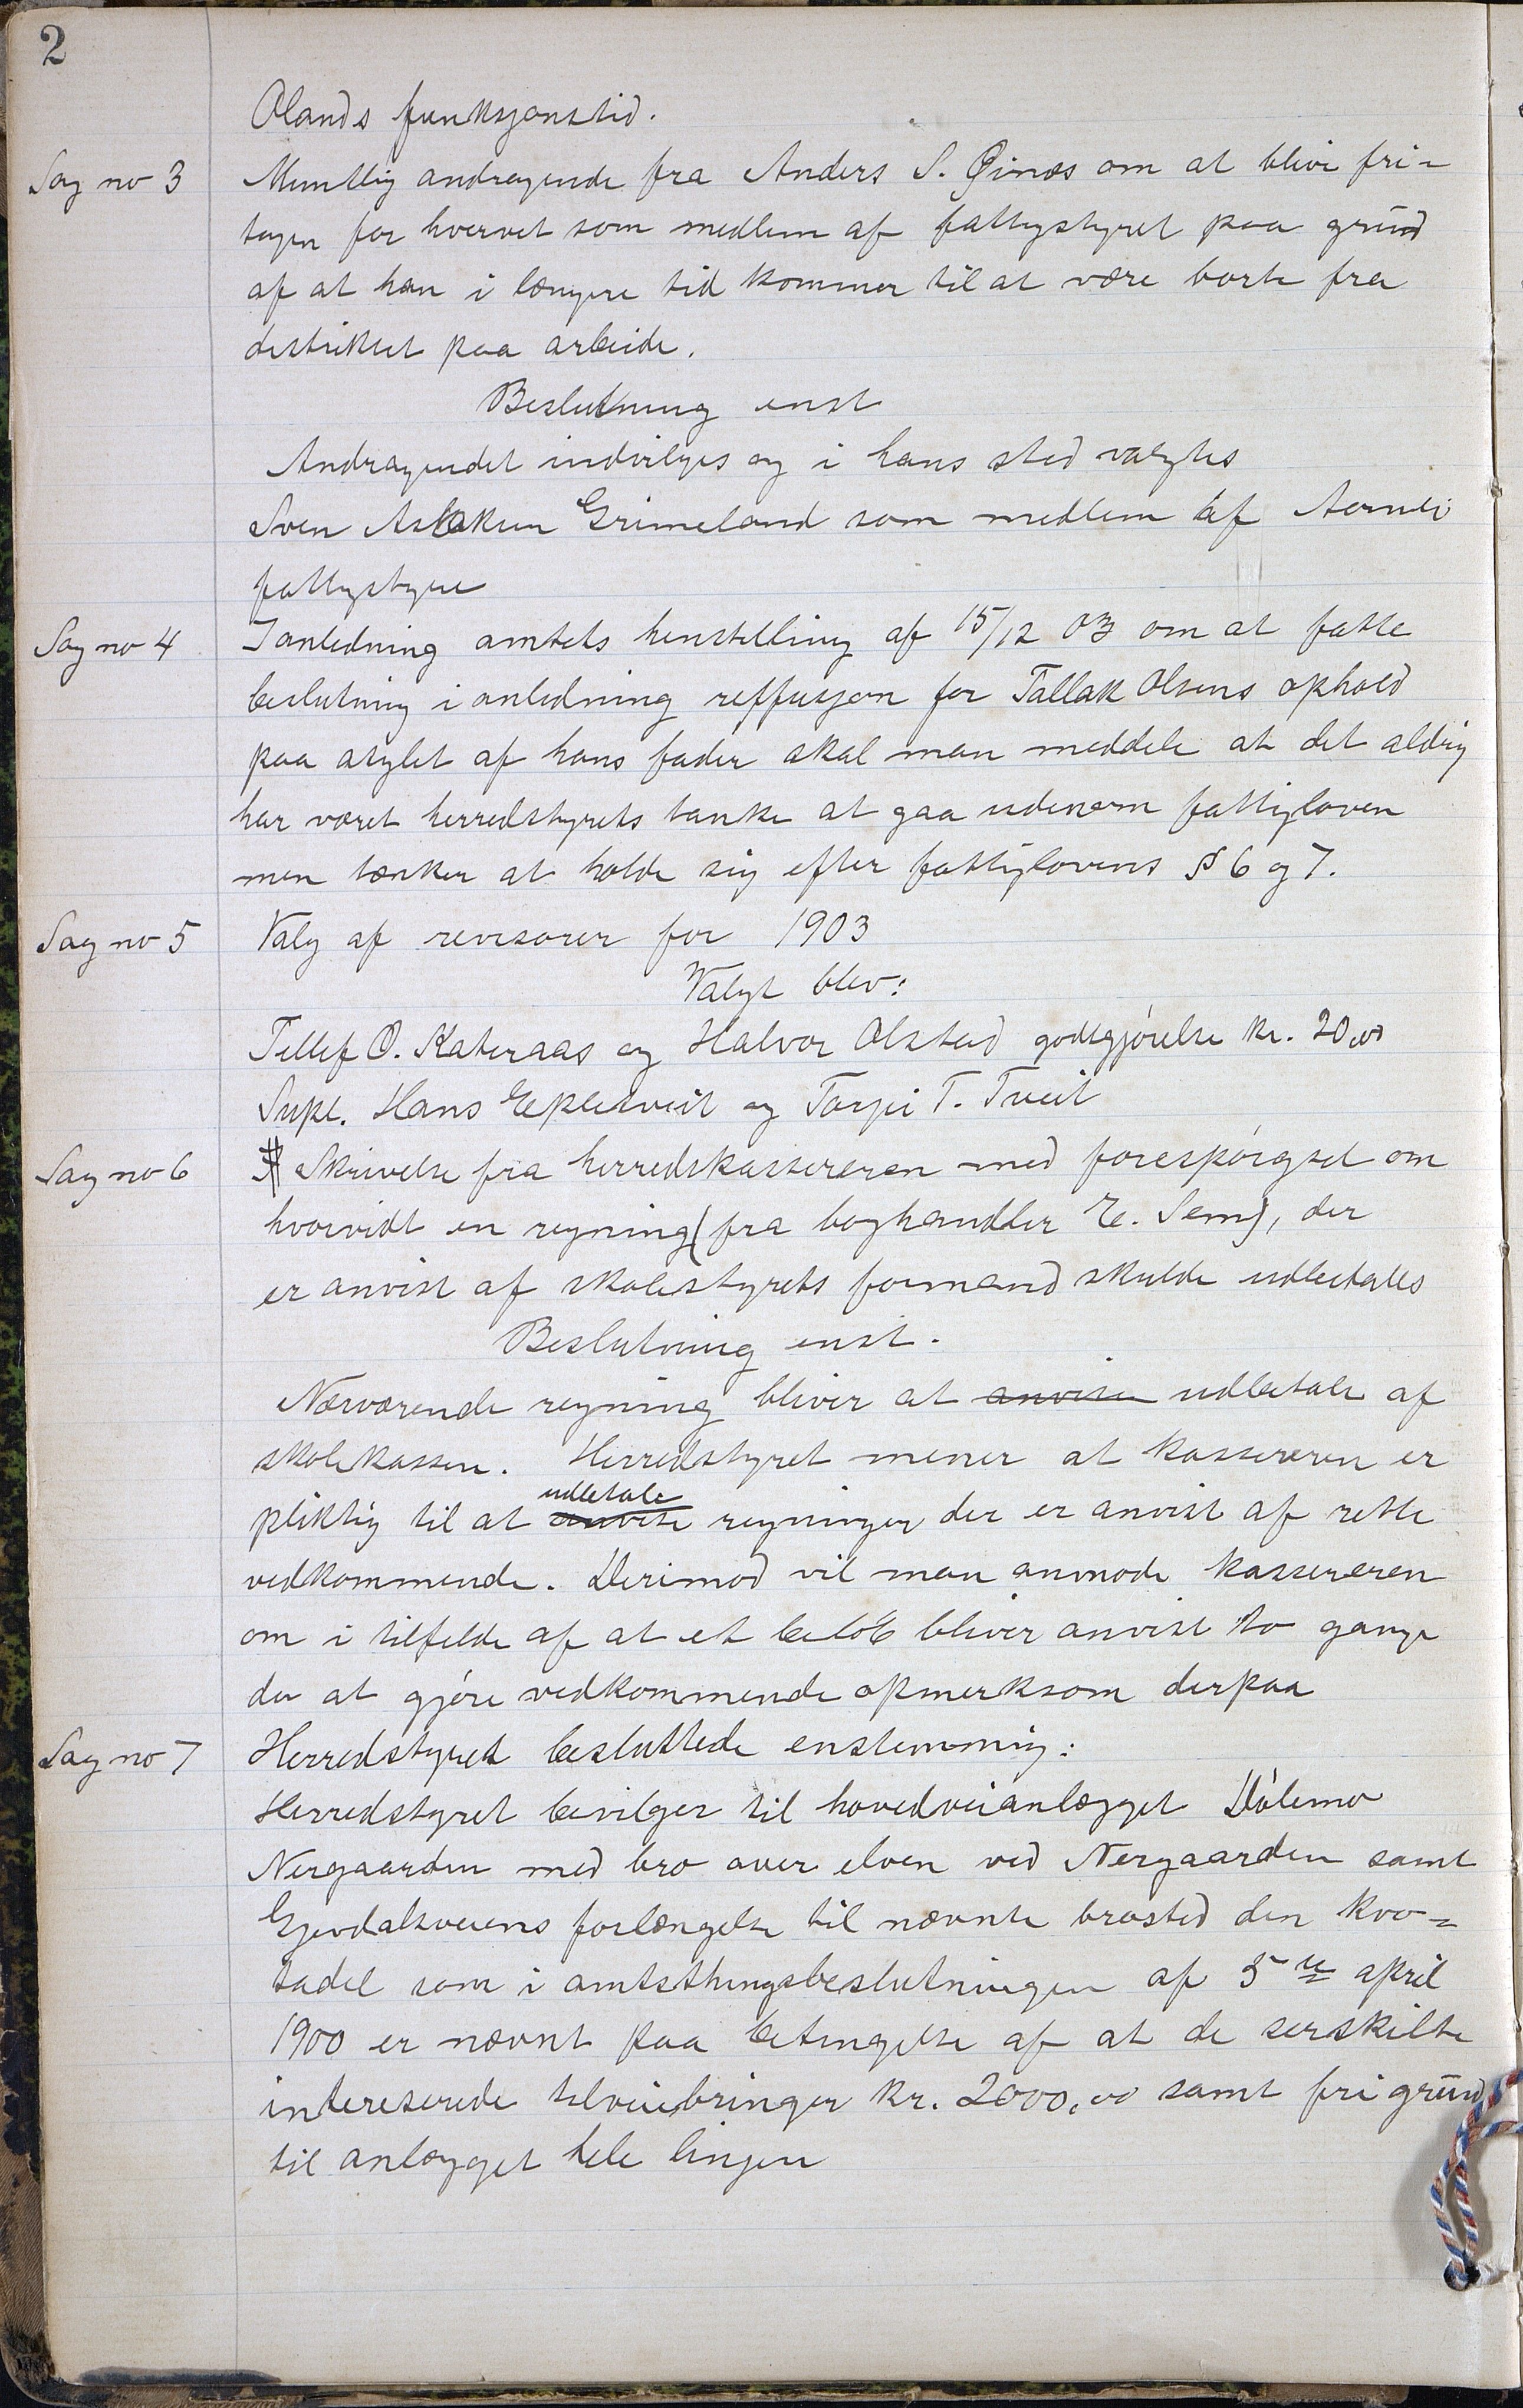 2
Olands funksjonstid.
Sag no 3 Muntlig andragende fra Anders S. Øinæs om at blive fri-
tagen for hvervet som medlem af fattigstyret paa grund
af at han i længere tid kommer til at være borte fra
destriktet paa arbeide.
Beslutning enst
Andragendet indvilges og i hans sted valgtes
Sven Aslaksen Grimeland som medlem af Aamli
fattigstyre
Sag no 4 I anledning amtets henstilling af 15/12 03 om at fatte
beslutning i anledning reffusjon for Tallak Olsens ophold
paa asylet af hans fader skal man meddele at det aldrig
har været herredstyrets tanke at gaa udenom fattigloven
men tænker at holde sig efter fattiglovens § 6 og 7.
Sag no 5 Valg af revisorer for 1903
Valgt blev:
Tellef O. Kateraas og Halvor Olstad godtgjørelse kr. 20,00
Supl. Hans Eppletveit og Torjei T. Tveit
Sag no 6 Skrivelse fra herredskassereren med forespørgsel om
hvorvidt en regning (fra boghandler E. Sem), der
er anvist af skolestyrets formand skulde udbetales
Beslutning enst.
Nærværende regning bliver at anvise udbetale af
skolekassen. Herredstyret mener at kassereren er
udbetale
pliktig til at anvise regninger der er anvist af rette
vedkommende. Derimod vil man anmode kassereren
om i tilfelde af at et beløb bliver anvist to gange
da at gjøre vedkommende opmerksom derpaa
Sag no 7 Herredstyret besluttede enstemmig:
Herredstyret bevilger til hovedveianlægget Dølemo
Nergaarden med bro over elven ved Nergaarden samt
Gjevdalsveiens forlængelse til nævnte brosted den kvo-
tadel som i amtsthingsbeslutningen af 5te april
1900 er nævnt paa betingelse af at de serskilte
intereserede tilveiebringer kr. 2000,00 samt fri grund
til anlægget hele linjen